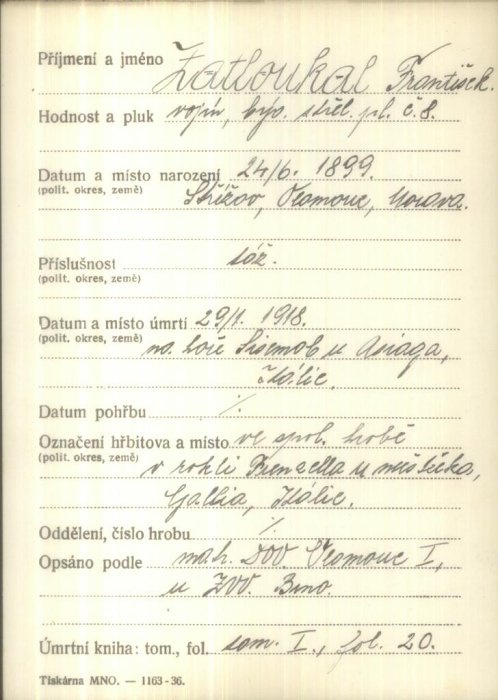 Příjmení a jméno Zatloukal František.
Hodnost a pluk vojín, býv. střel. pl. č. 8.
Datum a místo narození 24/6. 1899.
(polit. okres, země) Střížov, Olomouc, Morava.
Příslušnost töž.
(polit. okres, země)
Datum a místo úmrtí 29/1. 1918.
(polit. okres, země) na hoře Sisemol u Asiaga,
Itálie.
Datum pohřbu ./.
Označení hřbitova a místo ve spol. hrobě
(polit. okres, země) v rokli Frenzella u městečka,
Gallia, Itálie.
Oddělení, číslo hrobu ./.
Opsáno podle mah. DOV. Olomouc I,
u ZVV. Brno.
Úmrtní kniha: tom., fol. tom. I., fol. 20.
Tiskárna MNO. — 1163-36.